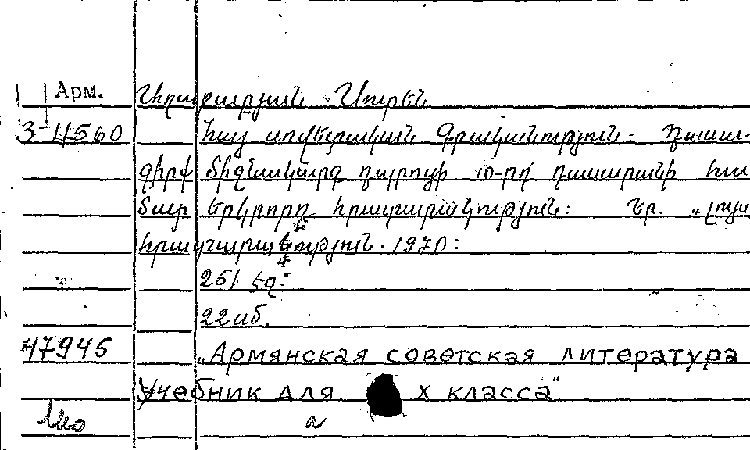 Арм. Աղաբաբյան Սուրեն
3-4560 Հայ սովետական գրականություն. Դասա-
գիրք միջնակարգ դպրոցի 10-րդ դասարանի հա
մար երկրորդ հրատարակություն: Եր. „Լույս
հրատարակություն. 1970:
251 էջ:
22 սմ.
47945 „Армянская советская литература
Учебник для X класса"